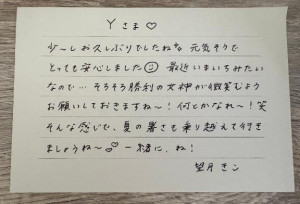 Yさま♡
少〜しお久しぶりでしたね 元気そうで
とっても安心しました☺ 最近いまいちみたい
なので… そろそろ勝利の女神が微笑むよう
お願いしておきますね〜! 何とかなれ〜! 笑
そんな感じで、夏の暑さも乗り越えて行き
ましょうね〜 一緒に、ね!
望月